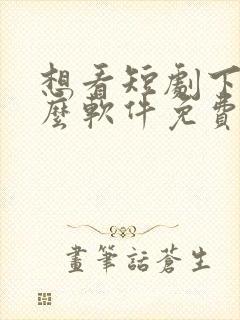 想看短劇下
麼軟件免費
畫筆話蒼生